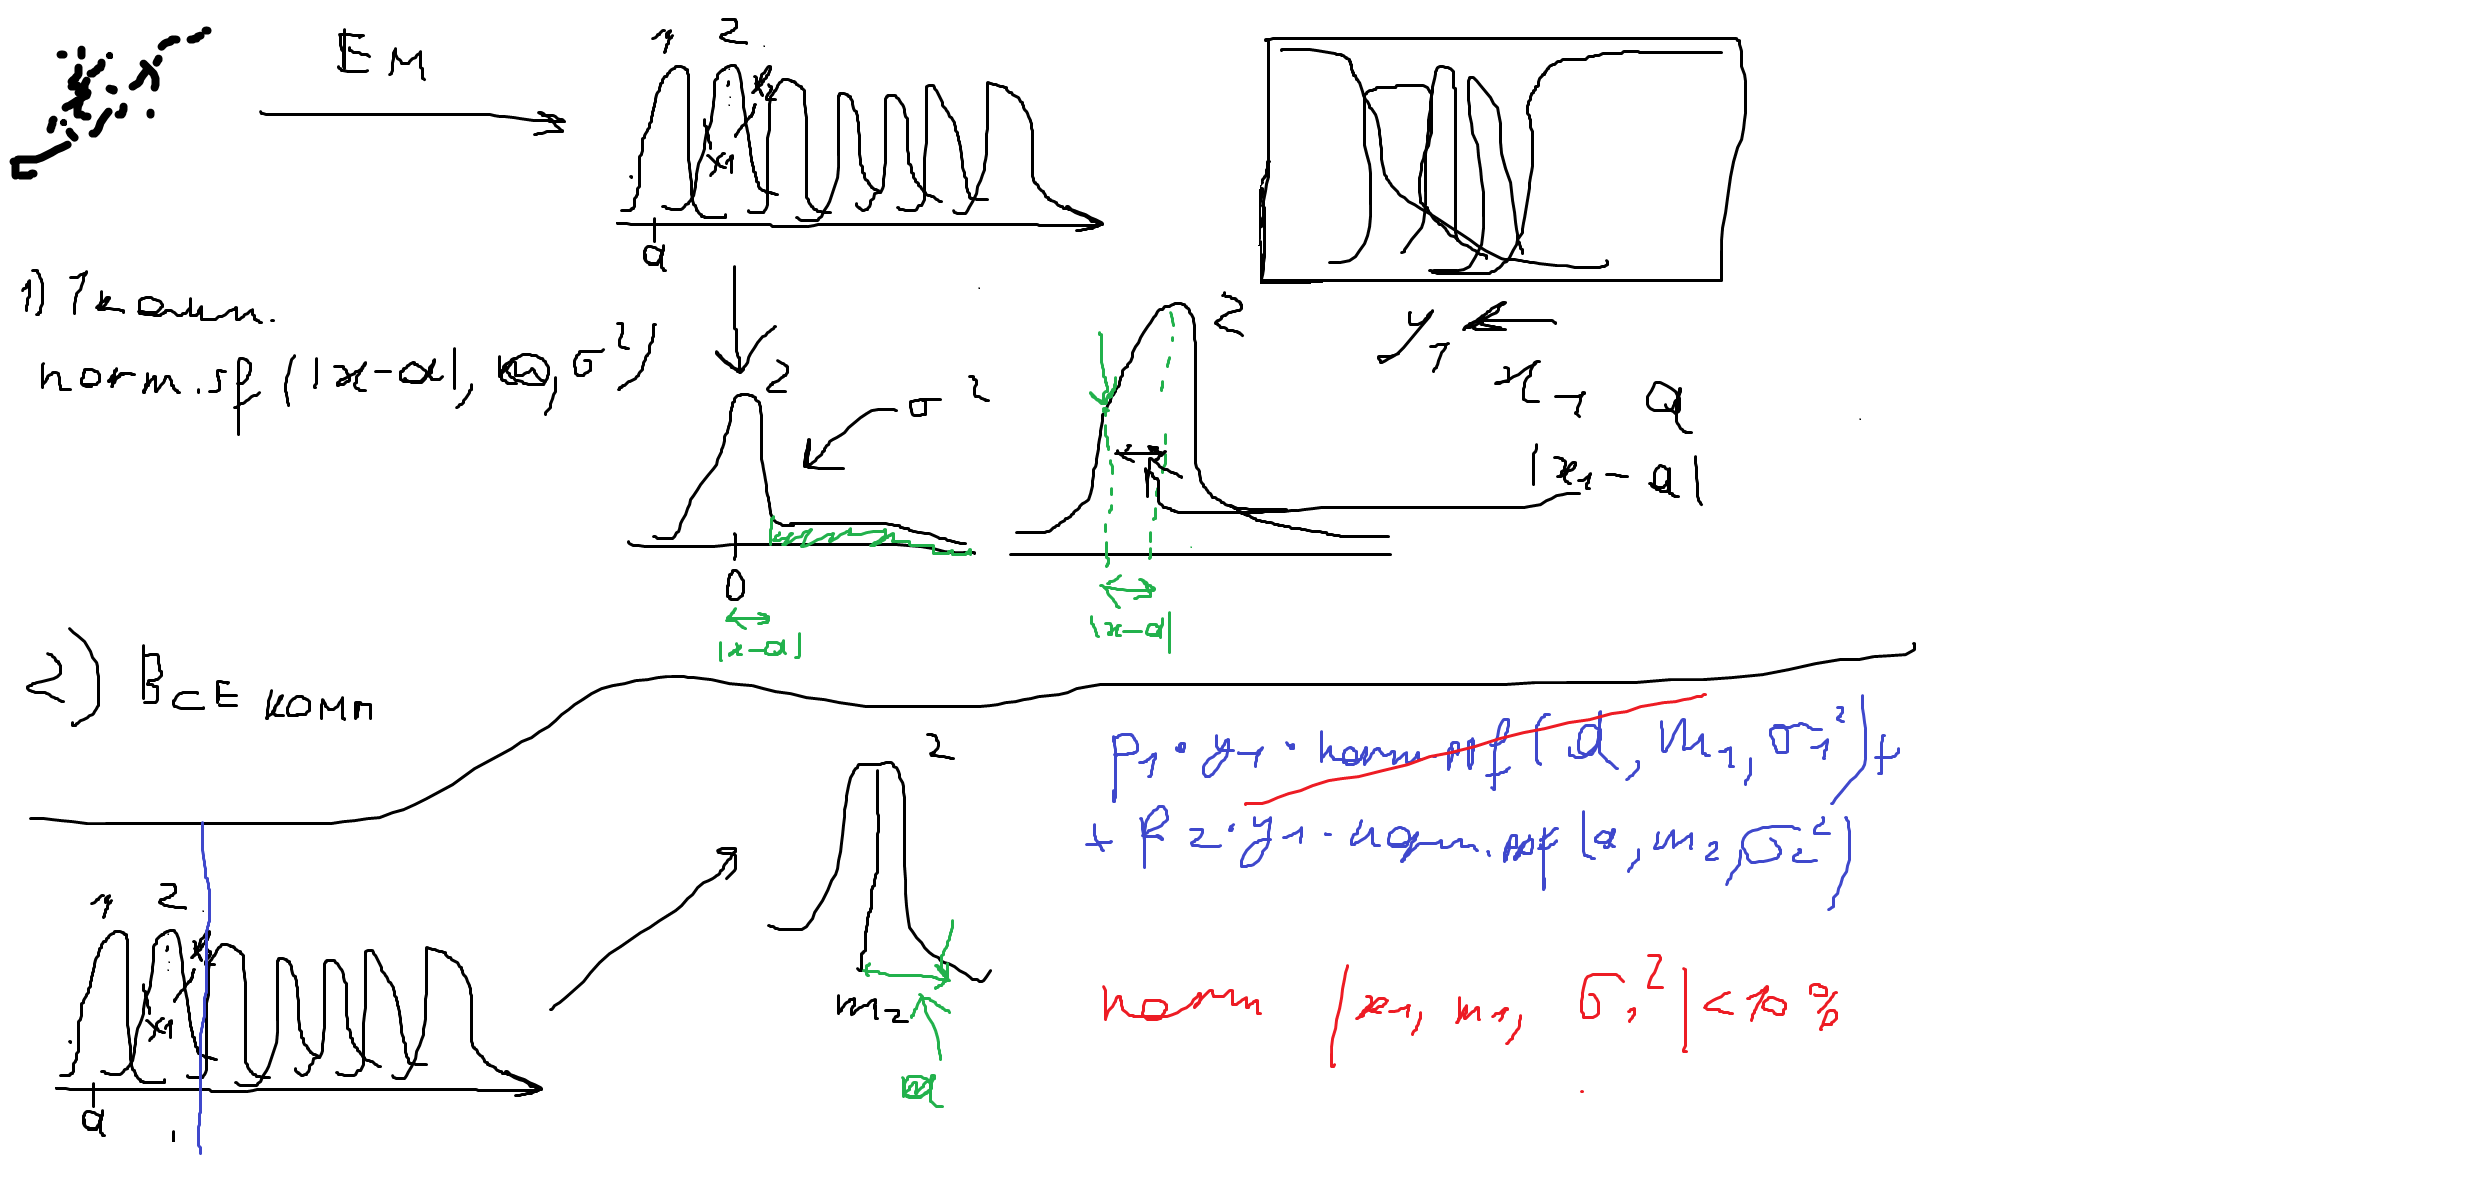 EM
1 2
x₂
x1
a
1) 1 комп.
norm.sf (|x-a|, σ²)
2
σ²
0
|x-a|
2
|x-a|
y₁
x₁ a
|x₁-a|
2) ВСЕ комп
1 2
x1
a
2
m₂
P₁ · y₁ · норм.ppf (d, m₁, σ₁²) +
+ P2 · y1 · норм.ppf (a, m₂, σ₂²)
норм (x₁, m₁, σ₁²) < 10 %